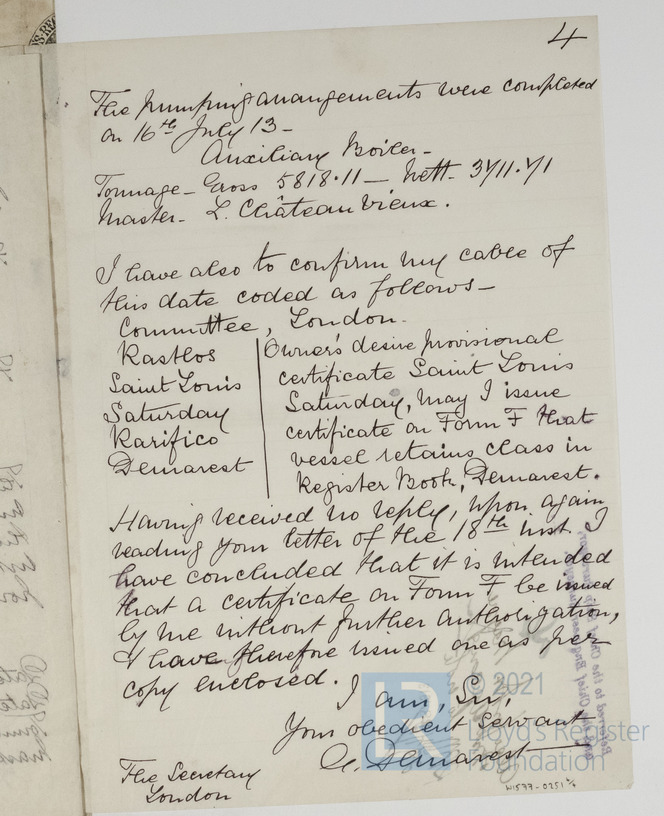 4
The pumping arrangements were completed
on 16th July 13 -
Auxiliary Boiler -
Tonnage - Gross 5818.11 - Nett - 3711.71
Master - L. Château Vieux.
I have also to confirm my cable of
this date coded as follows -
Committee, London.
Rastlos
Saint Louis
Saturday
Rarifico
Demarest
Owner's desire provisional
certificate Saint Louis
Saturday, may I issue
certificate on Form F that
vessel retains class in
Register Book, Demarest.
Having received no reply, upon again
reading your letter of the 18th inst. I
have concluded that it is intended
that a certificate on Form F be issued
by me without further authorization,
& have therefore issued one as per
copy enclosed.
I am, Sir,
Your obedient Servant
Demarest
The Secretary
London
© 2021
LR
Lloyd's Register
Foundation
W1577-0251